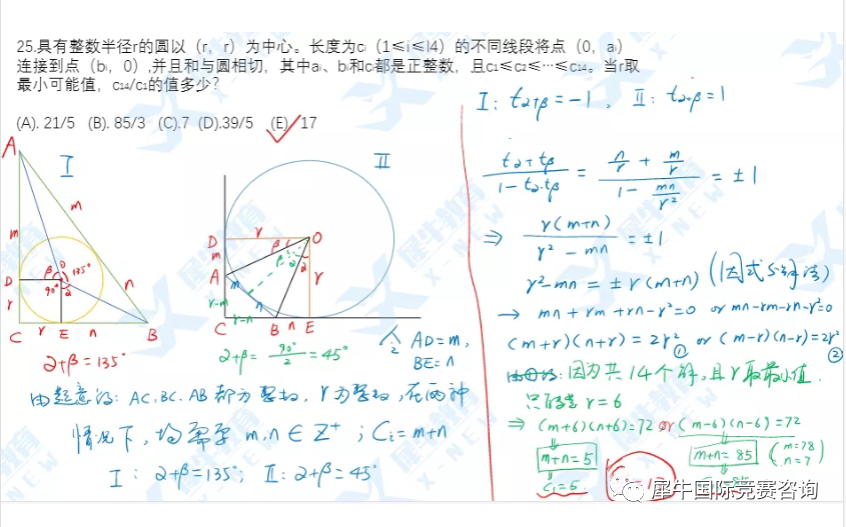 25.具有整数半径r的圆以（r，r）为中心。长度为cᵢ（1≤i≤l4）的不同线段将点（0，aᵢ）
连接到点（bᵢ，0）,并且和与圆相切，其中aᵢ、bᵢ和cᵢ都是正整数，且c₁≤c₂≤···≤c₁₄。当r取
最小可能值，c₁₄/c₁的值多少？
(A). 21/5 (B). 85/3 (C).7 (D).39/5 (E) 17
I
A
m
m
D
β
O
135°
90°
2
r
n
C
r
E
n
B
2+β=135°
II
D
r
O
m
β
2
2
A
m
r
r-m
n
C
r-n
B
n
E
2+β= 90°/2 =45°
令
AD=m,
BE=n
由题意得: AC, BC, AB 都为整数, r为整数, 在两种
情况下, 均需要 m,n∈Z⁺ ; Cᵢ=m+n
I: 2+β=135°; II: 2+β=45°
I: t₂₊β=-1, II: t₂₊β=1
(t₂+tβ)/(1-t₂·tβ) = (n/r + m/r)/(1 - mn/r²) = ±1
⇒ r(m+n)/(r²-mn) = ±1
r²-mn = ±r(m+n) (因式分解法)
→ mn+rm+rn-r²=0 or mn-rm-rn-r²=0
(m+r)(n+r)=2r² ① or (m-r)(n-r)=2r² ②
因为共14个解, 且r取最小值.
只能是 r=6
⇒ (m+6)(n+6)=72 or (m-6)(n-6)=72
m+n=5
m+n=85
(m=78
n=7)
C₁=5
犀牛国际竞赛咨询